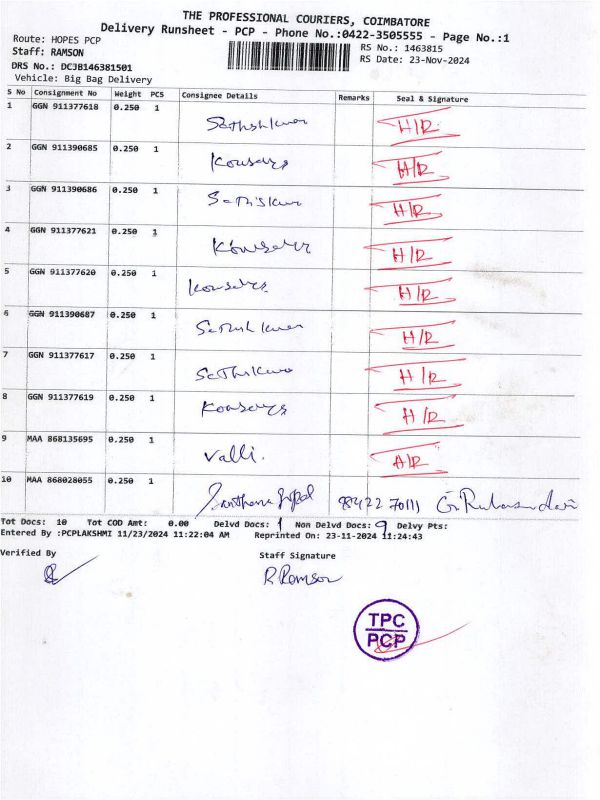 THE PROFESSIONAL COURIERS, COIMBATORE
Delivery Runsheet - PCP - Phone No.:0422-3505555 - Page No.:1
Route: HOPES PCP
RS No.: 1463815
Staff: RAMSON
RS Date: 23-Nov-2024
DRS No.: DCJB146381501
Vehicle: Big Bag Delivery
S No Consignment No Weight PCS Consignee Details Remarks Seal & Signature
1 GGN 911377618 0.250 1 H/R
2 GGN 911390685 0.250 1 H/R
3 GGN 911390686 0.250 1 H/R
4 GGN 911377621 0.250 1 H/R
5 GGN 911377620 0.250 1 H/R
6 GGN 911390687 0.250 1 H/R
7 GGN 911377617 0.250 1 H/R
8 GGN 911377619 0.250 1 H/R
9 MAA 868135695 0.250 1 Valli. A/R
10 MAA 868028055 0.250 1 98422 70111
Tot Docs: 10 Tot COD Amt: 0.00 Delvd Docs: 1 Non Delvd Docs: 9 Delvy Pts:
Entered By :PCPLAKSHMI 11/23/2024 11:22:04 AM Reprinted On: 23-11-2024 11:24:43
Verified By Staff Signature
R Ramson
TPC
PCP